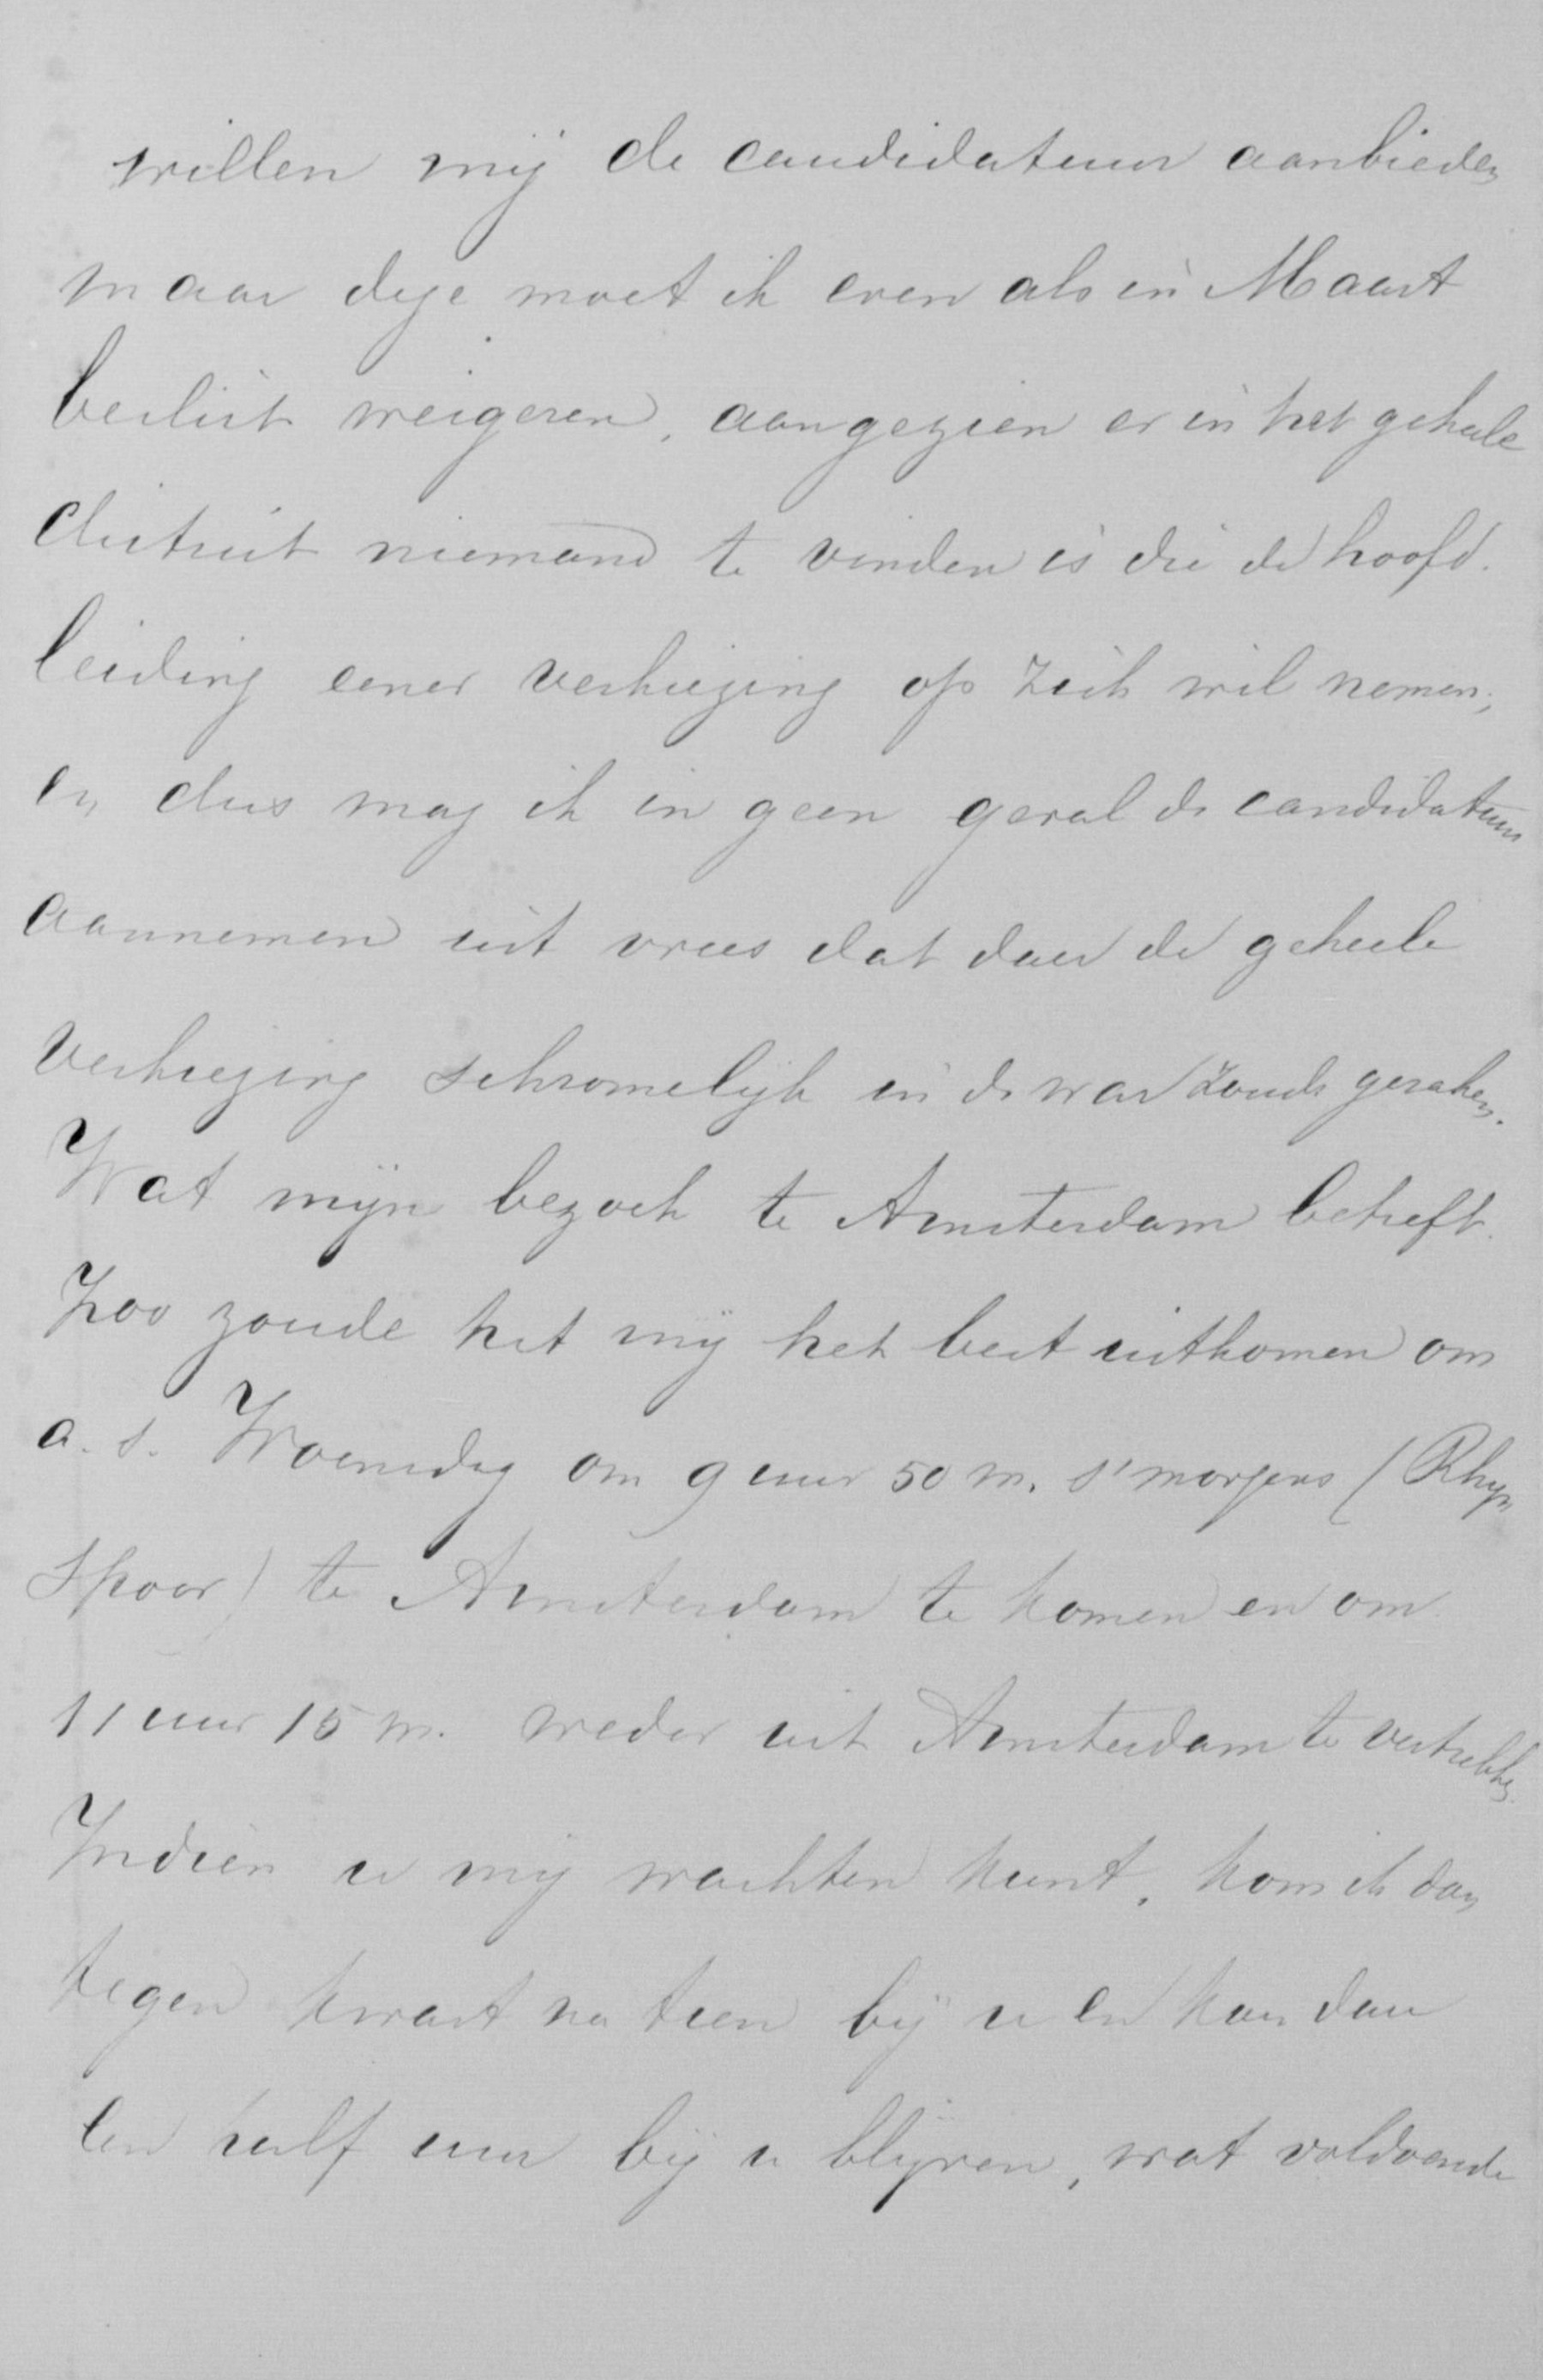 willen mij de candidatuur aanbieden
maar deze moet ik even als in Maart
beslist weigeren, aangezien er in het geheele
district niemand te vinden is die de hoofd-
leiding eener verkiezing op zich wil nemen;
en dus mag ik in geen geval de candidatuur
aannemen uit vrees dat dan de geheele
verkiezing schromelijk in de war zoude geraken.
Wat mijn bezoek te Amsterdam betreft.
Zoo zoude het mij het best uitkomen om
a. s. Woensdag om 9 uur 50 m. s' morgens (Rhyn
spoor) te Amsterdam te komen en om
11 uur 15 m. weder uit Amsterdam te vertrekken.
Indien u mij wachten kunt, kom ik dan
tegen kwart na tien bij u en kan dan
een half uur bij u blijven, wat voldoende